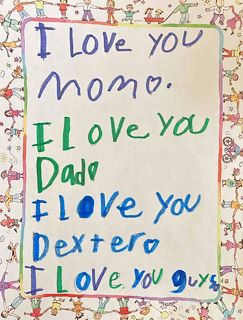 I LOVE YOU
MOMO.
I LOVE YOU
Dado
I LOVE YOU
Dextero
I LOVE YOU guys